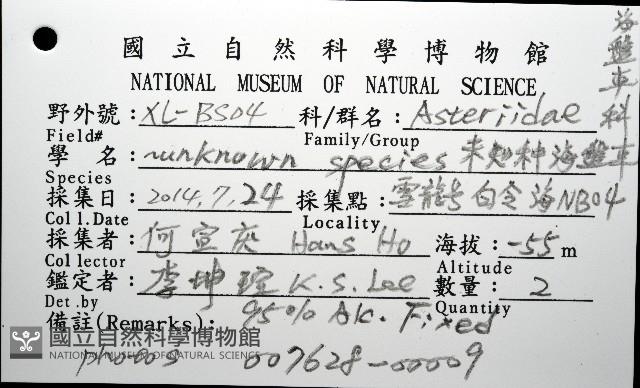 海盤車科
國立自然科學博物館
NATIONAL MUSEUM OF NATURAL SCIENCE
野外號：XL-BS04 科/群名：Asteriidae
Field# Family/Group
學 名：unknown species 未知種海盤車
Species
採集日：2014,7,24 採集點：雪龍號白令海NB04
Coll.Date Locality
採集者：何宣慶 Hans Ho 海拔：-55m
Collector Altitude
鑑定者：李坤瑄 K.S. Lee 數量：2
Det.by Quantity
備註(Remarks)：95% Alc. Fixed
國立自然科學博物館
NATIONAL MUSEUM OF NATURAL SCIENCE
photos 007628-00009